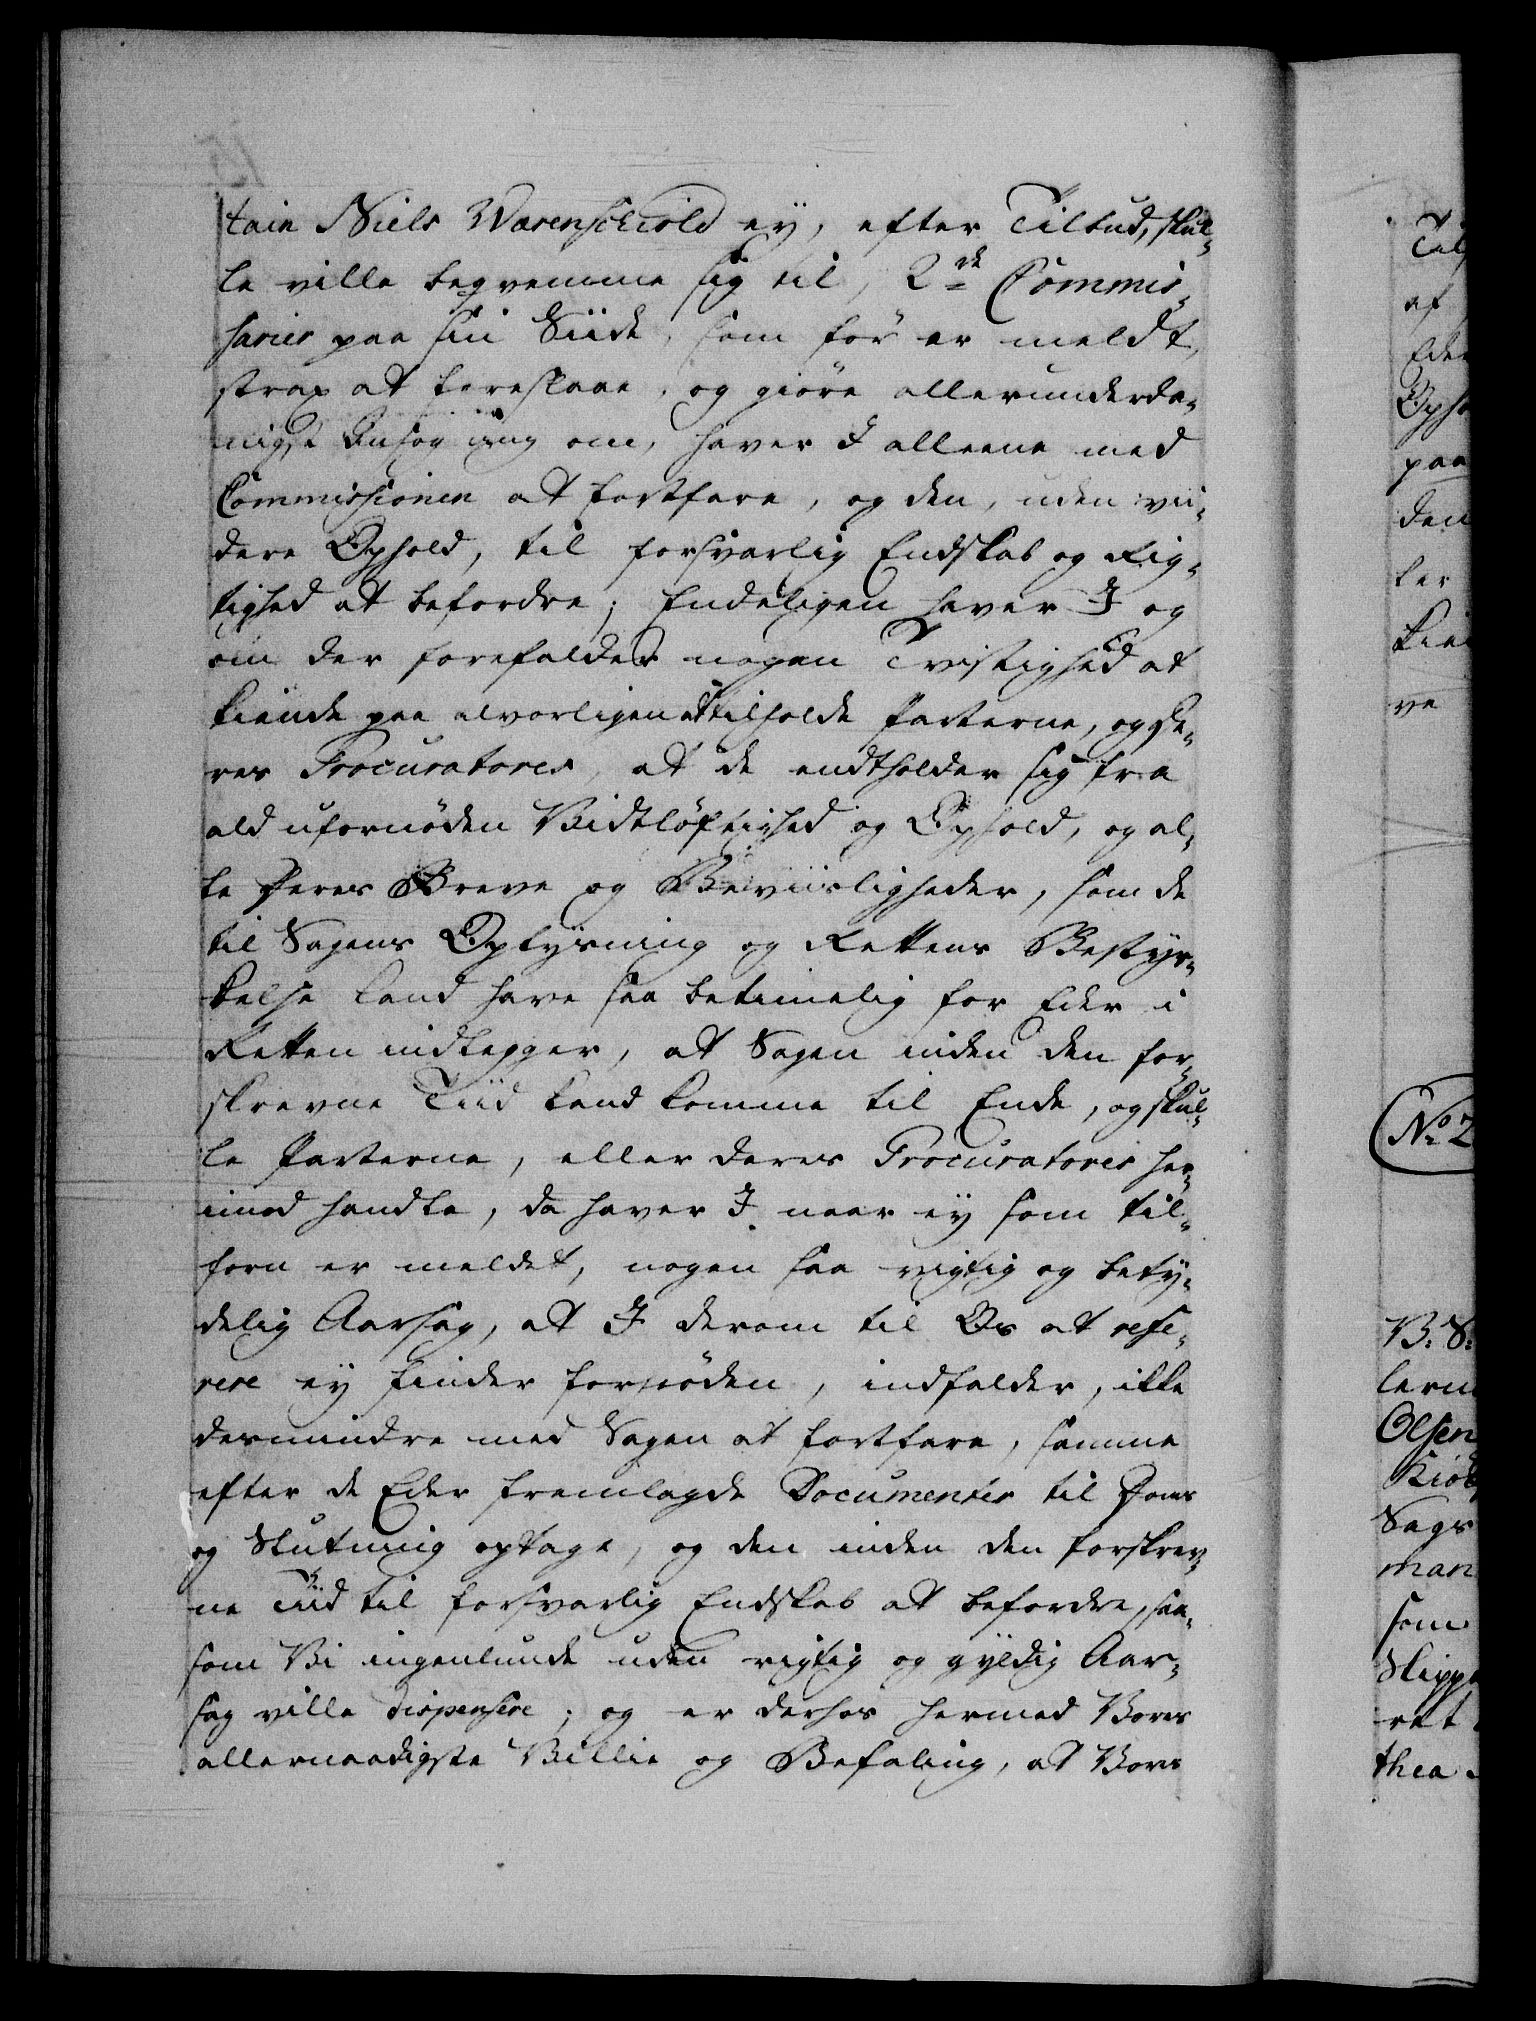 tain Niels Warenschiold ey, efter Tilbud, skul-
le ville beqvemme sig til, 2de Commis-
sarier paa sin Siide, som før er meldt,
strax at foreslaae, og giøre allerunderda-
nigst Ansøgning om, haver I alleene med
Commissionen at fortfare, og den, uden vii-
dere Ophold, til forsvarlig Endskab og Rig-
tighed at befordre; Endeligen haver I og
om der forefalder nogen Tvistighed at
kiende paa alvorligen at tilholde Parterne, og de-
res Procuratores, at de endtholder sig fra
ald ufornøden Vidtløftighed og Ophold, og al-
le Deres Breve og Beviisligheder, som de
til Sagens Oplysning og Rettens Bestyr-
kelse kand have saa betimelig for Eder i
Retten indlegger, at Sagen inden den for-
skrevne Tiid kand komme til Ende, og skul-
le Parterne, eller deres Procuratores her-
imod handle, da haver I naar ey som til-
forn er meldet, nogen saa vigtig og bety-
delig Aarsag, at I derom til Os at refe-
rere ey finder fornøden, indfalder, ikke
desmindre med Sagen at fortfare, samme
efter de Eder fremlagde Documenter til Doms
og Slutning optage, og den inden den forskrev-
ne Tiid til forsvarlig Endskab at befordre, saa-
som Vi ingenlunde uden vigtig og gyldig Aar-
sag ville dispensere; og er derhos hermed Vores
allernaadigste Villie og Befaling, at Vores
Til
af
Eder
Opho
paa
den
ler
kien
ve
No 2
B: S:
lern
Olsen
Kiøb
Sags
man
som
Skipp
ret
thea